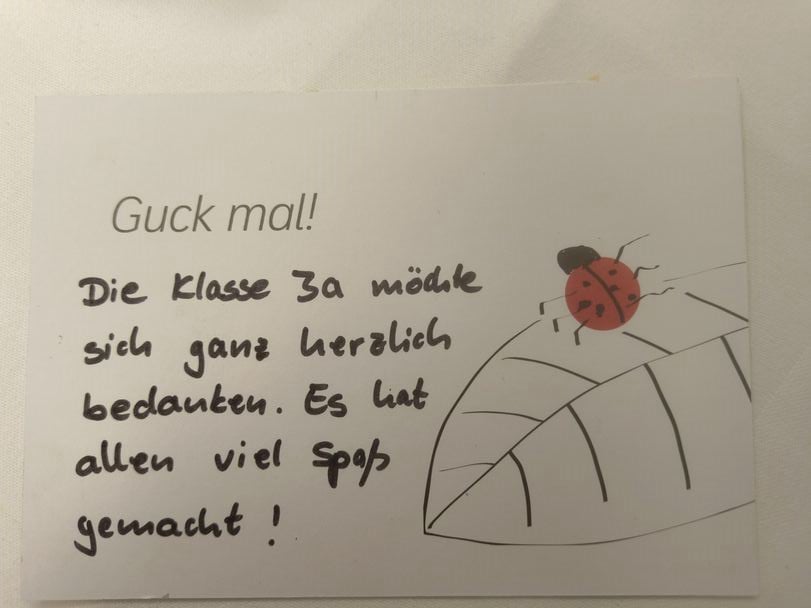 Guck mal!
Die Klasse 3a möchte
sich ganz herzlich
bedanken. Es hat
allen viel Spaß
gemacht!